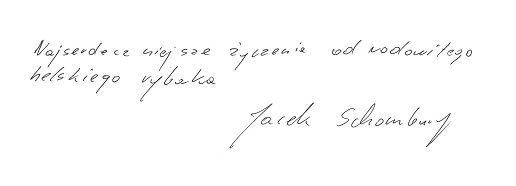 Najserdeczniejsze życzenia od rodowitego
helskiego rybaka
Jacek Schomburg